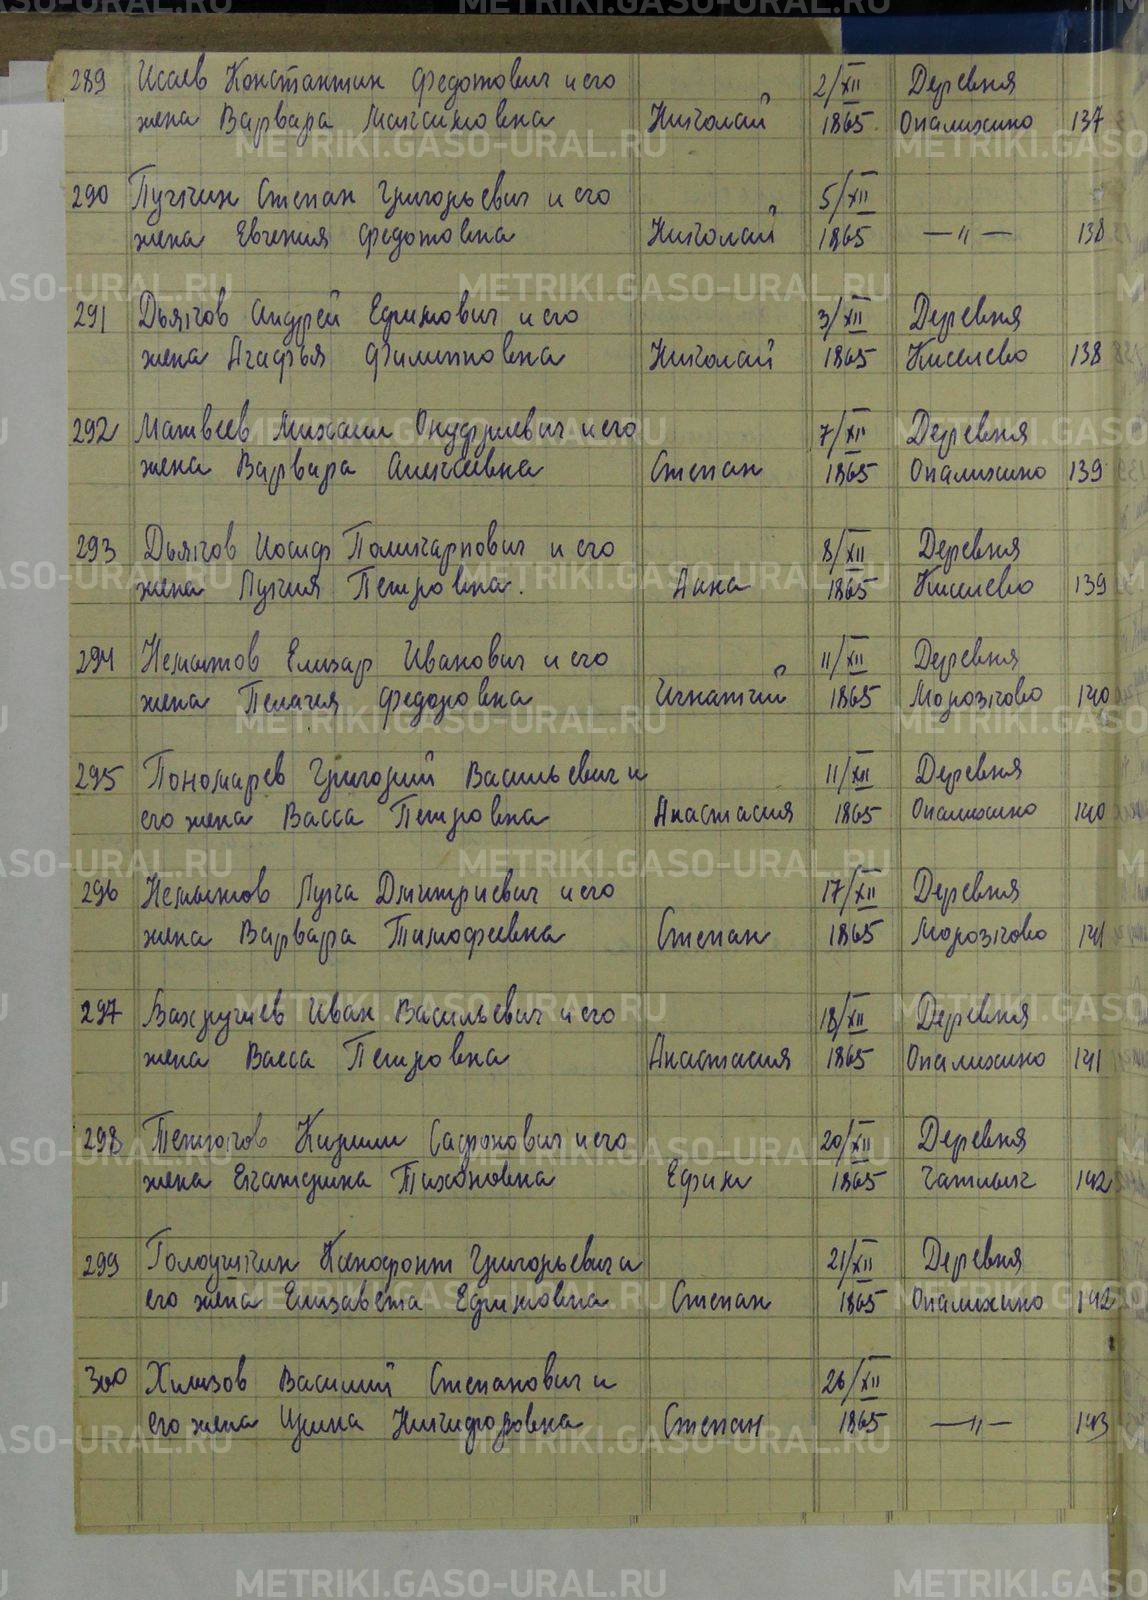 289 Исаев Константин Федотович и его 2/XII Деревня
жена Варвара Максимовна Николай 1865 Опалихино 137
290 Пучкин Степан Григорьевич и его 5/XII
жена Евгения Федотовна Николай 1865 —"— 138
291 Дьяков Андрей Ефимович и его 3/XII Деревня
жена Агафья Филипповна Николай 1865 Киселево 138
292 Матвеев Михаил Онуфриевич и его 7/XII Деревня
жена Варвара Алексеевна Степан 1865 Опалихино 139
293 Дьяков Иосиф Поликарпович и его 8/XII Деревня
жена Лукия Петровна. Анна 1865 Киселево 139
294 Немытов Елизар Иванович и его 11/XII Деревня
жена Пелагея Федоровна Игнатий 1865 Морозково 140
295 Пономарев Григорий Васильевич и 11/XII Деревня
его жена Васса Петровна Анастасия 1865 Опалихино 140
296 Немытов Лука Дмитриевич и его 17/XII Деревня
жена Варвара Тимофеевна Степан 1865 Морозково 141
297 Вахрушев Иван Васильевич и его 18/XII Деревня
жена Васса Петровна Анастасия 1865 Опалихино 141
298 Сафонович и его 20/XII Деревня
жена Екатерина Тихоновна Ефим 1865 142
299 Голоушкин Ксенофонт Григорьевич и 21/XII Деревня
его жена Елизавета Ефимовна Степан 1865 Опалихино 142
300 Хлызов Василий Степанович и 26/XII
его жена Ирина Никифоровна Степан 1865 —"— 143
METRIKI.GASO-URAL.RU